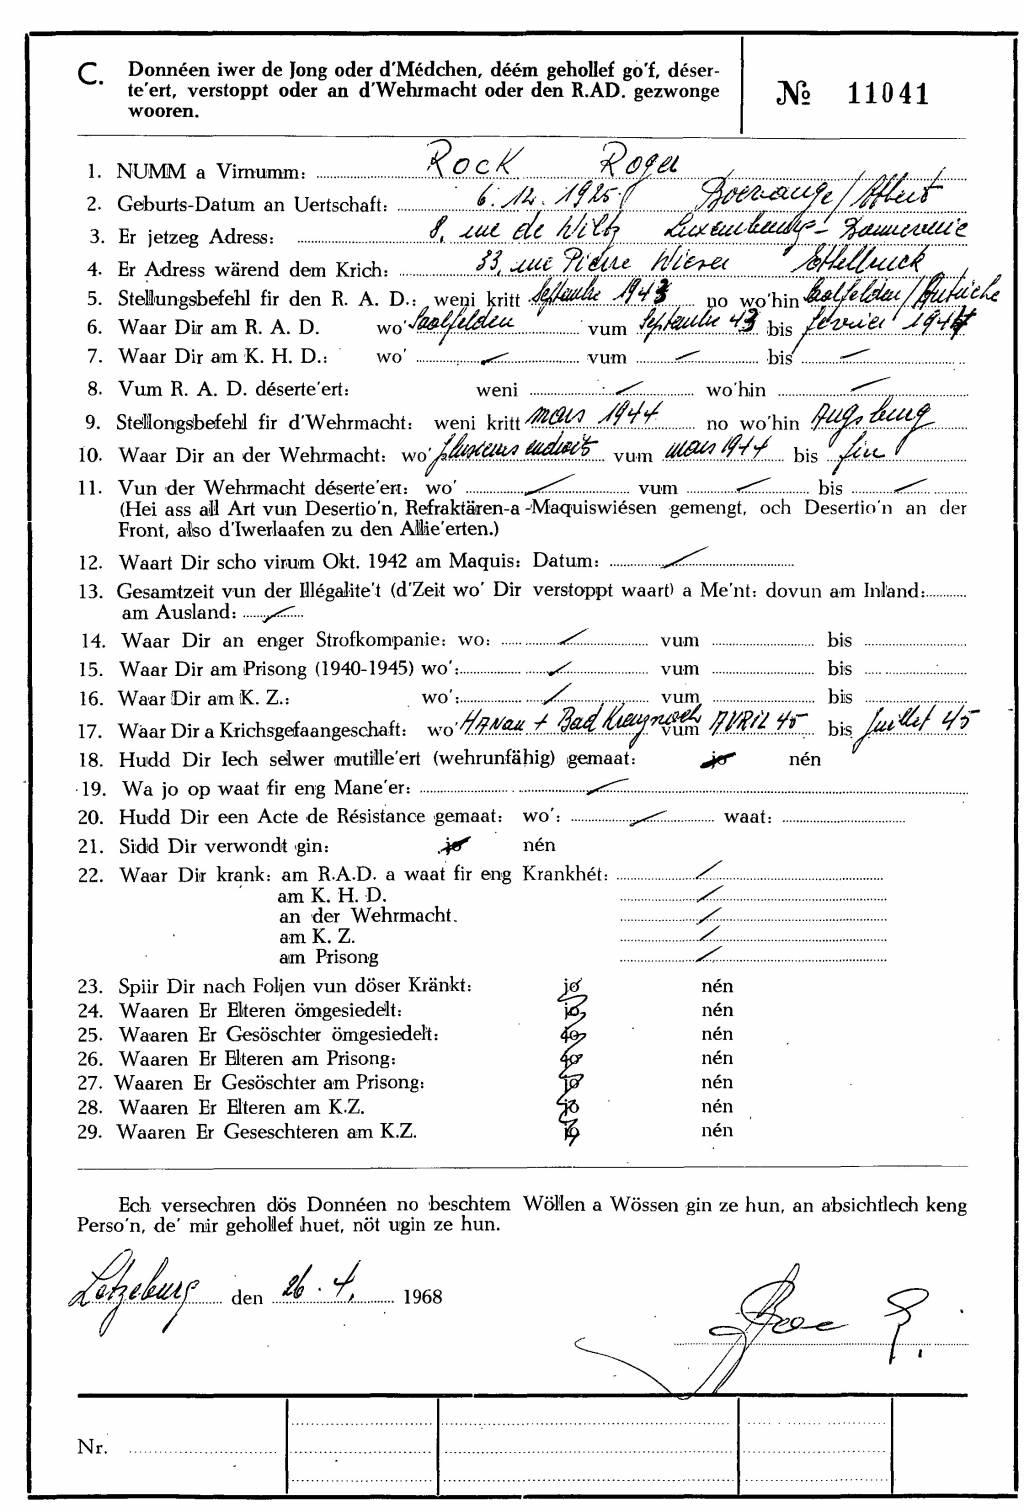 C. Donnéen iwer de Jong oder d'Médchen, déém gehollef go'f, déser-
te'ert, verstoppt oder an d'Wehrmacht oder den R.AD. gezwonge
wooren.
№ 11041
1. NUMM a Virnumm: Rock Roger
2. Geburts-Datum an Uertschaft: 6. 12. 1925 Boevange/Attert
3. Er jetzeg Adress: 8, rue de Wiltz Luxembourg-Bonnevoie
4. Er Adress wärend dem Krich: 33, rue Pierre Wiser Ettelbruck
5. Stellungsbefehl fir den R. A. D.: weni kritt Septembre 1943 no wo'hin Saalfelden/Autriche
6. Waar Dir am R. A. D. wo' Saalfelden vum Septembre 43 bis février 1944
7. Waar Dir am K. H. D.: wo' vum bis
8. Vum R. A. D. déserte'ert: weni wo'hin
9. Stellongsbefehl fir d'Wehrmacht: weni kritt mars 1944 no wo'hin Augsburg
10. Waar Dir an der Wehrmacht: wo' plusieurs endroits vum mars 1944 bis fin
11. Vun der Wehrmacht déserte'ert: wo' vum bis
(Hei ass all Art vun Desertio'n, Refraktären-a-Maquiswiésen gemengt, och Desertio'n an der
Front, also d'Iwerlaafen zu den Allie'erten.)
12. Waart Dir scho virum Okt. 1942 am Maquis: Datum:
13. Gesamtzeit vun der Illégalite't (d'Zeit wo' Dir verstoppt waart) a Me'nt: dovun am Inland:
am Ausland:
14. Waar Dir an enger Strofkompanie: wo: vum bis
15. Waar Dir am Prisong (1940-1945) wo': vum bis
16. Waar Dir am K. Z.: wo': vum bis
17. Waar Dir a Krichsgefaangeschaft: wo' Hanau + Bad Kreuznach vum AVRIL 45 bis Juillet 45
18. Hudd Dir Iech selwer mutille'ert (wehrunfähig) gemaat: jo nén
19. Wa jo op waat fir eng Mane'er:
20. Hudd Dir een Acte de Résistance gemaat: wo': waat:
21. Sidd Dir verwondt gin: jo nén
22. Waar Dir krank: am R.A.D. a waat fir eng Krankhét:
am K. H. D.
an der Wehrmacht.
am K. Z.
am Prisong
23. Spiir Dir nach Foljen vun döser Kränkt: jo nén
24. Waaren Er Elteren ömgesiedelt: jo nén
25. Waaren Er Gesöschter ömgesiedelt: jo nén
26. Waaren Er Elteren am Prisong: jo nén
27. Waaren Er Gesöschter am Prisong: jo nén
28. Waaren Er Elteren am K.Z. jo nén
29. Waaren Er Geseschteren am K.Z. jo nén
Ech versechren dös Donnéen no beschtem Wöllen a Wössen gin ze hun, an absichtlech keng
Perso'n, de' mir gehollef huet, nöt ugin ze hun.
Letzeburg den 26. 4. 1968
Nr.